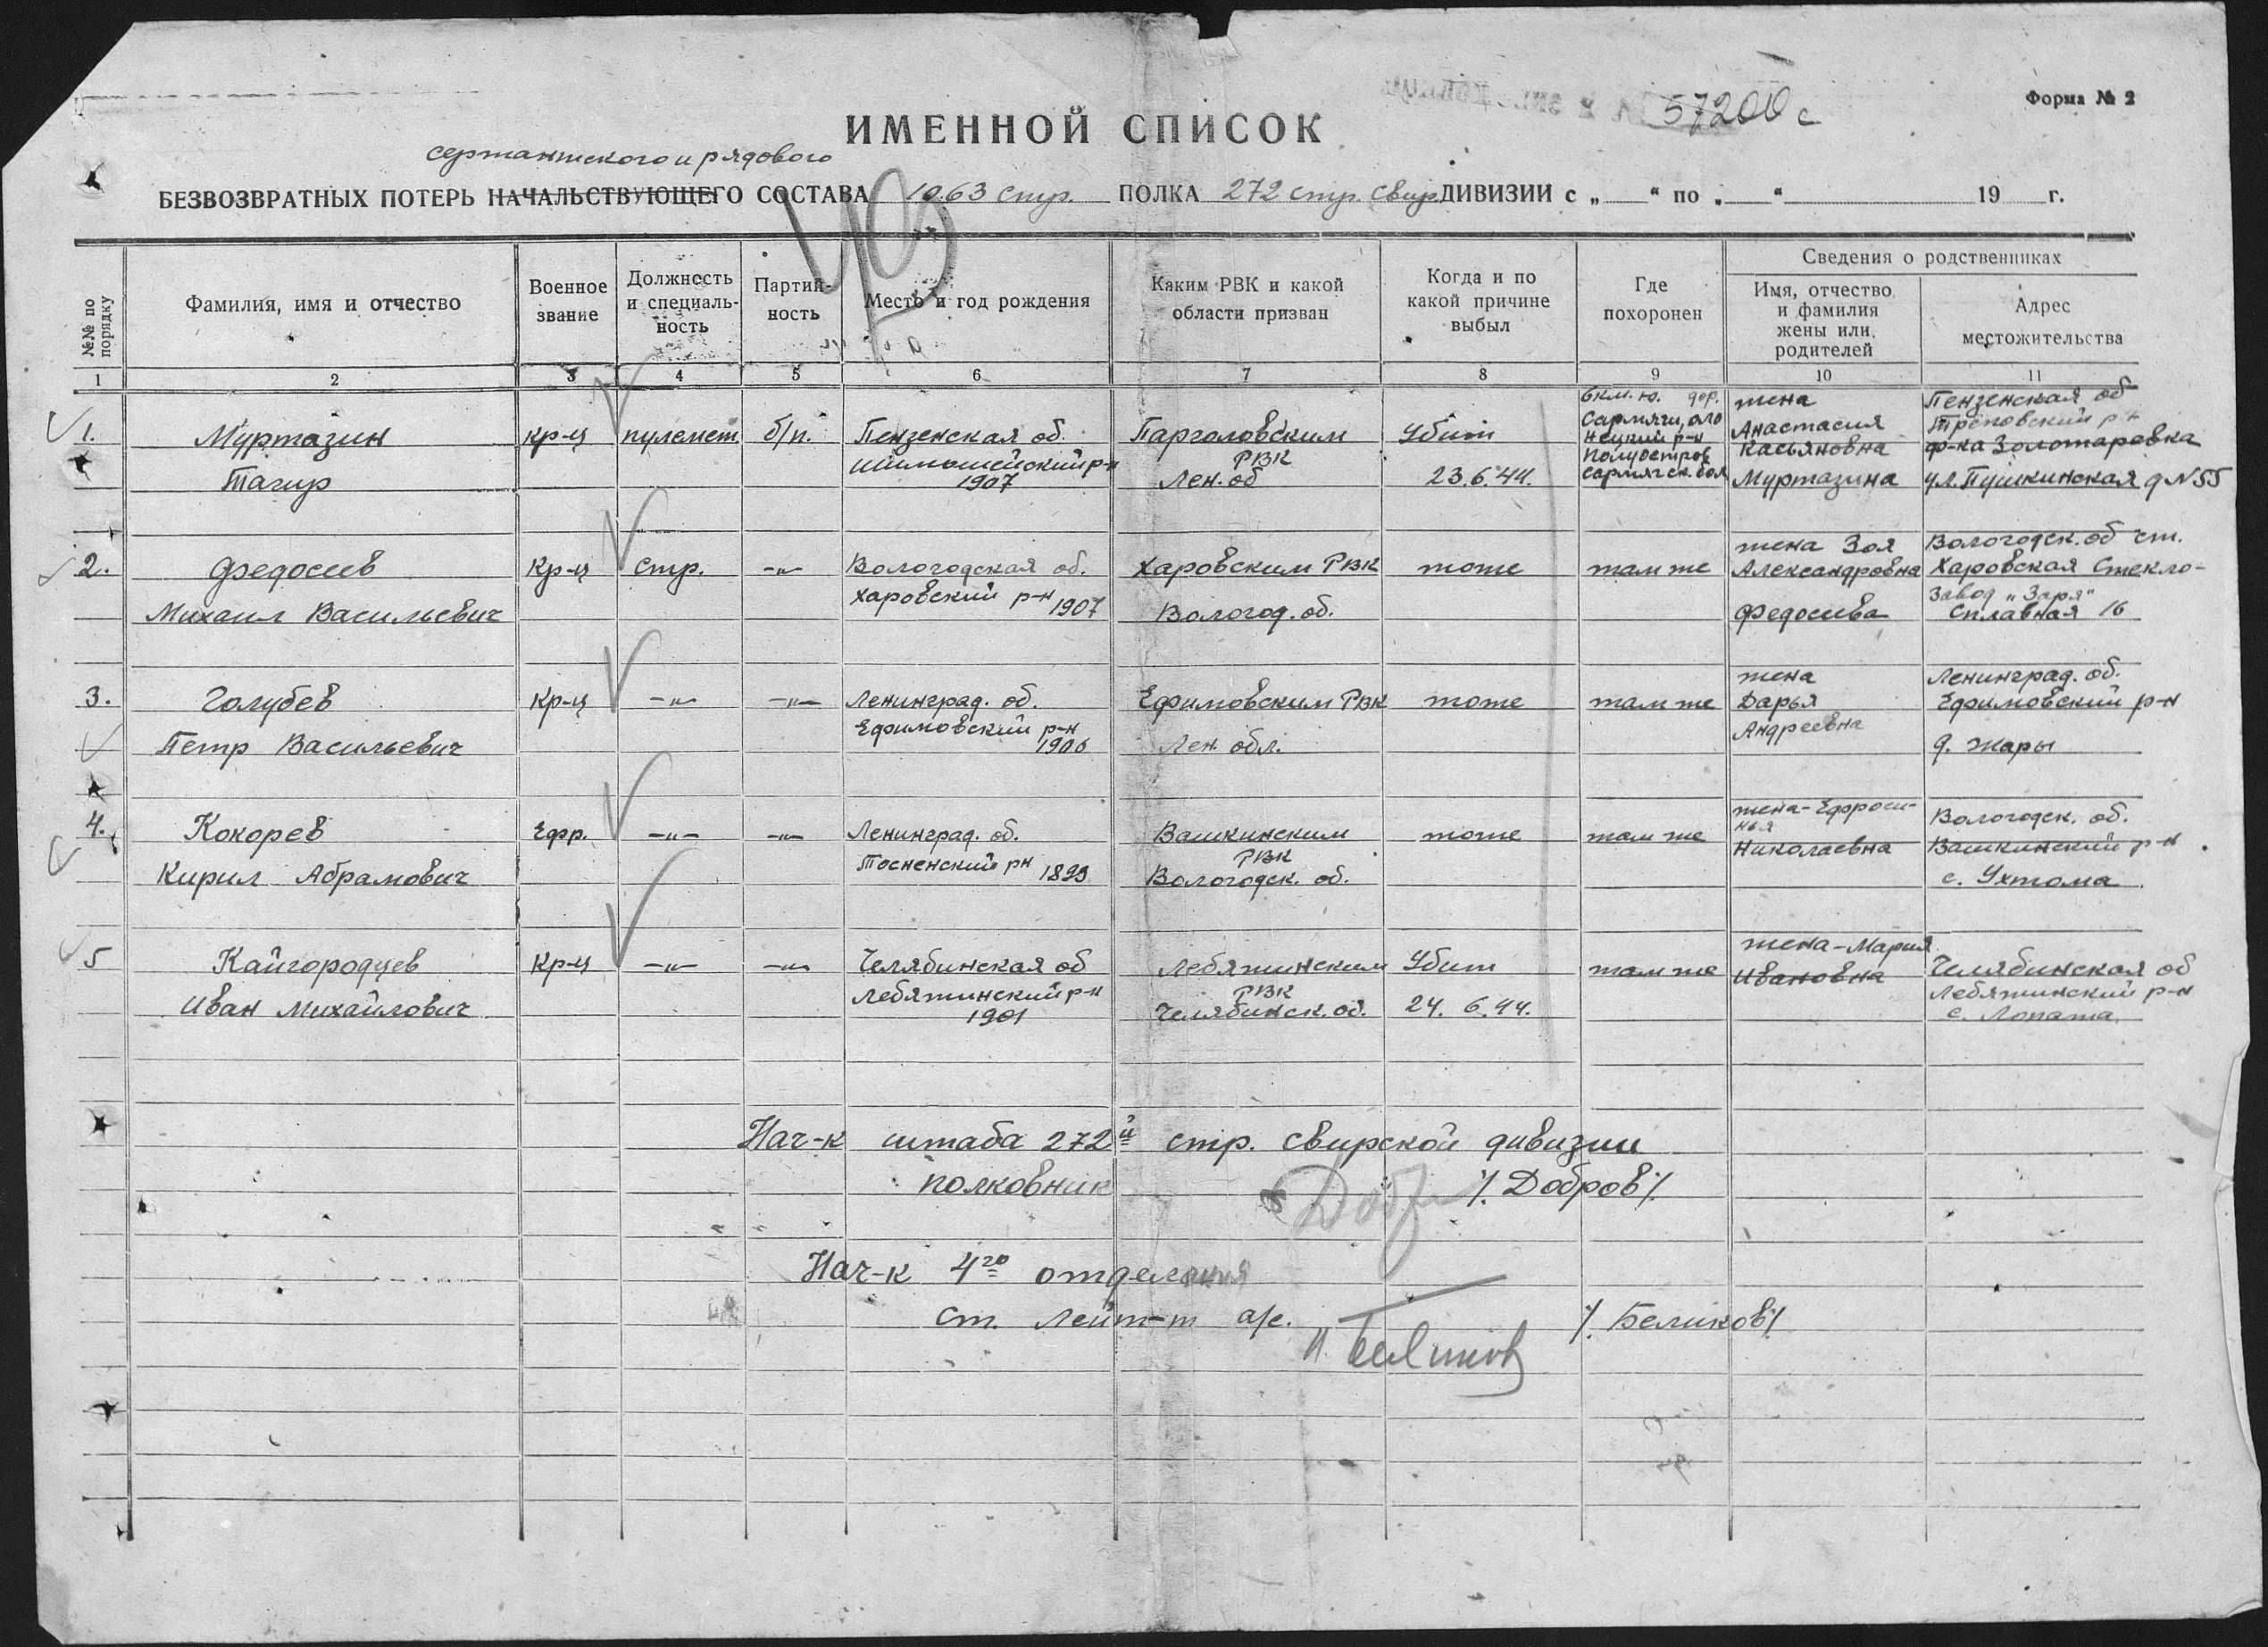 57200 с
Форма № 2
ИМЕННОЙ СПИСОК
сержантского и рядового
БЕЗВОЗВРАТНЫХ ПОТЕРЬ НАЧАЛЬСТВУЮЩЕГО СОСТАВА 1063 стр. ПОЛКА 272 стр. Свир. ДИВИЗИИ с „ “ по „ “ 19 г.
№№ по порядку
Фамилия, имя и отчество
Военное звание
Должность и специаль-ность
Партий-ность
Место и год рождения
Каким РВК и какой области призван
Когда и по какой причине выбыл
Где похоронен
Сведения о родственниках
Имя, отчество и фамилия жены или родителей
Адрес местожительства
1 2 3 4 5 6 7 8 9 10 11
1.
Муртазин
Тагир
кр-ц
пулемет.
б/п.
Пензенская об.
Шемышейский р-н
1907
Парголовским
РВК
Лен. об
Убит
23.6.44.
6 км. ю. дер.
Сармяги, оло
нецкий р-н
полуостров
сармягск. бол
жена
Анастасия
Касьяновна
Муртазина
Пензенская об
ф-ка Золотаревка
ул. Пушкинская д N 55
2.
Федосеев
Михаил Васильевич
Кр-ц
Стр.
-"-
Вологодская об.
Харовский р-н
1907
Харовским РВК
Вологод. об.
тоже
там же
жена Зоя
Александровна
Федосеева
Вологодск. об ст.
Харовская Стекло-
завод „Заря"
Сплавная 16
3.
Голубев
Петр Васильевич
Кр-ц
-"-
-"-
Ленинград. об.
Ефимовский р-н
1906
Ефимовским РВК
Лен. обл.
тоже
там же
жена
Дарья
Андреевна
Ленинград. об.
Ефимовский р-н
д. Жары
4.
Кокорев
Кирил Абрамович
Ефр.
-"-
-"-
Ленинград. об.
Тосненский рн
1899
Вашкинским
РВК
Вологодск. об.
тоже
там же
жена - Ефроси-
нья
Николаевна
Вологодск. об.
Вашкинский р-н
с. Ухтома
5
Кайгородцев
Иван Михайлович
Кр-ц
-"-
-"-
Челябинская об
Лебяжинский р-н
1901
Лебяжинским
РВК
Челябинск. об.
Убит
24. 6.44.
там же
жена - Мария
Ивановна
Челябинская об
Лебяжинский р-н
с. Лопата
Нач-к штаба 272й стр. Свирской дивизии
полковник /. Добров /.
Нач-к 4го отделения
Ст. Лейт-т а/с. /. Беликов /.